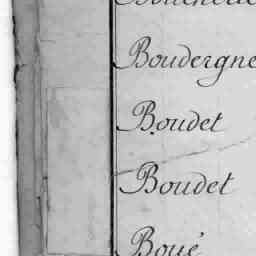 Boudergne
Boudet
Boudet
Boué